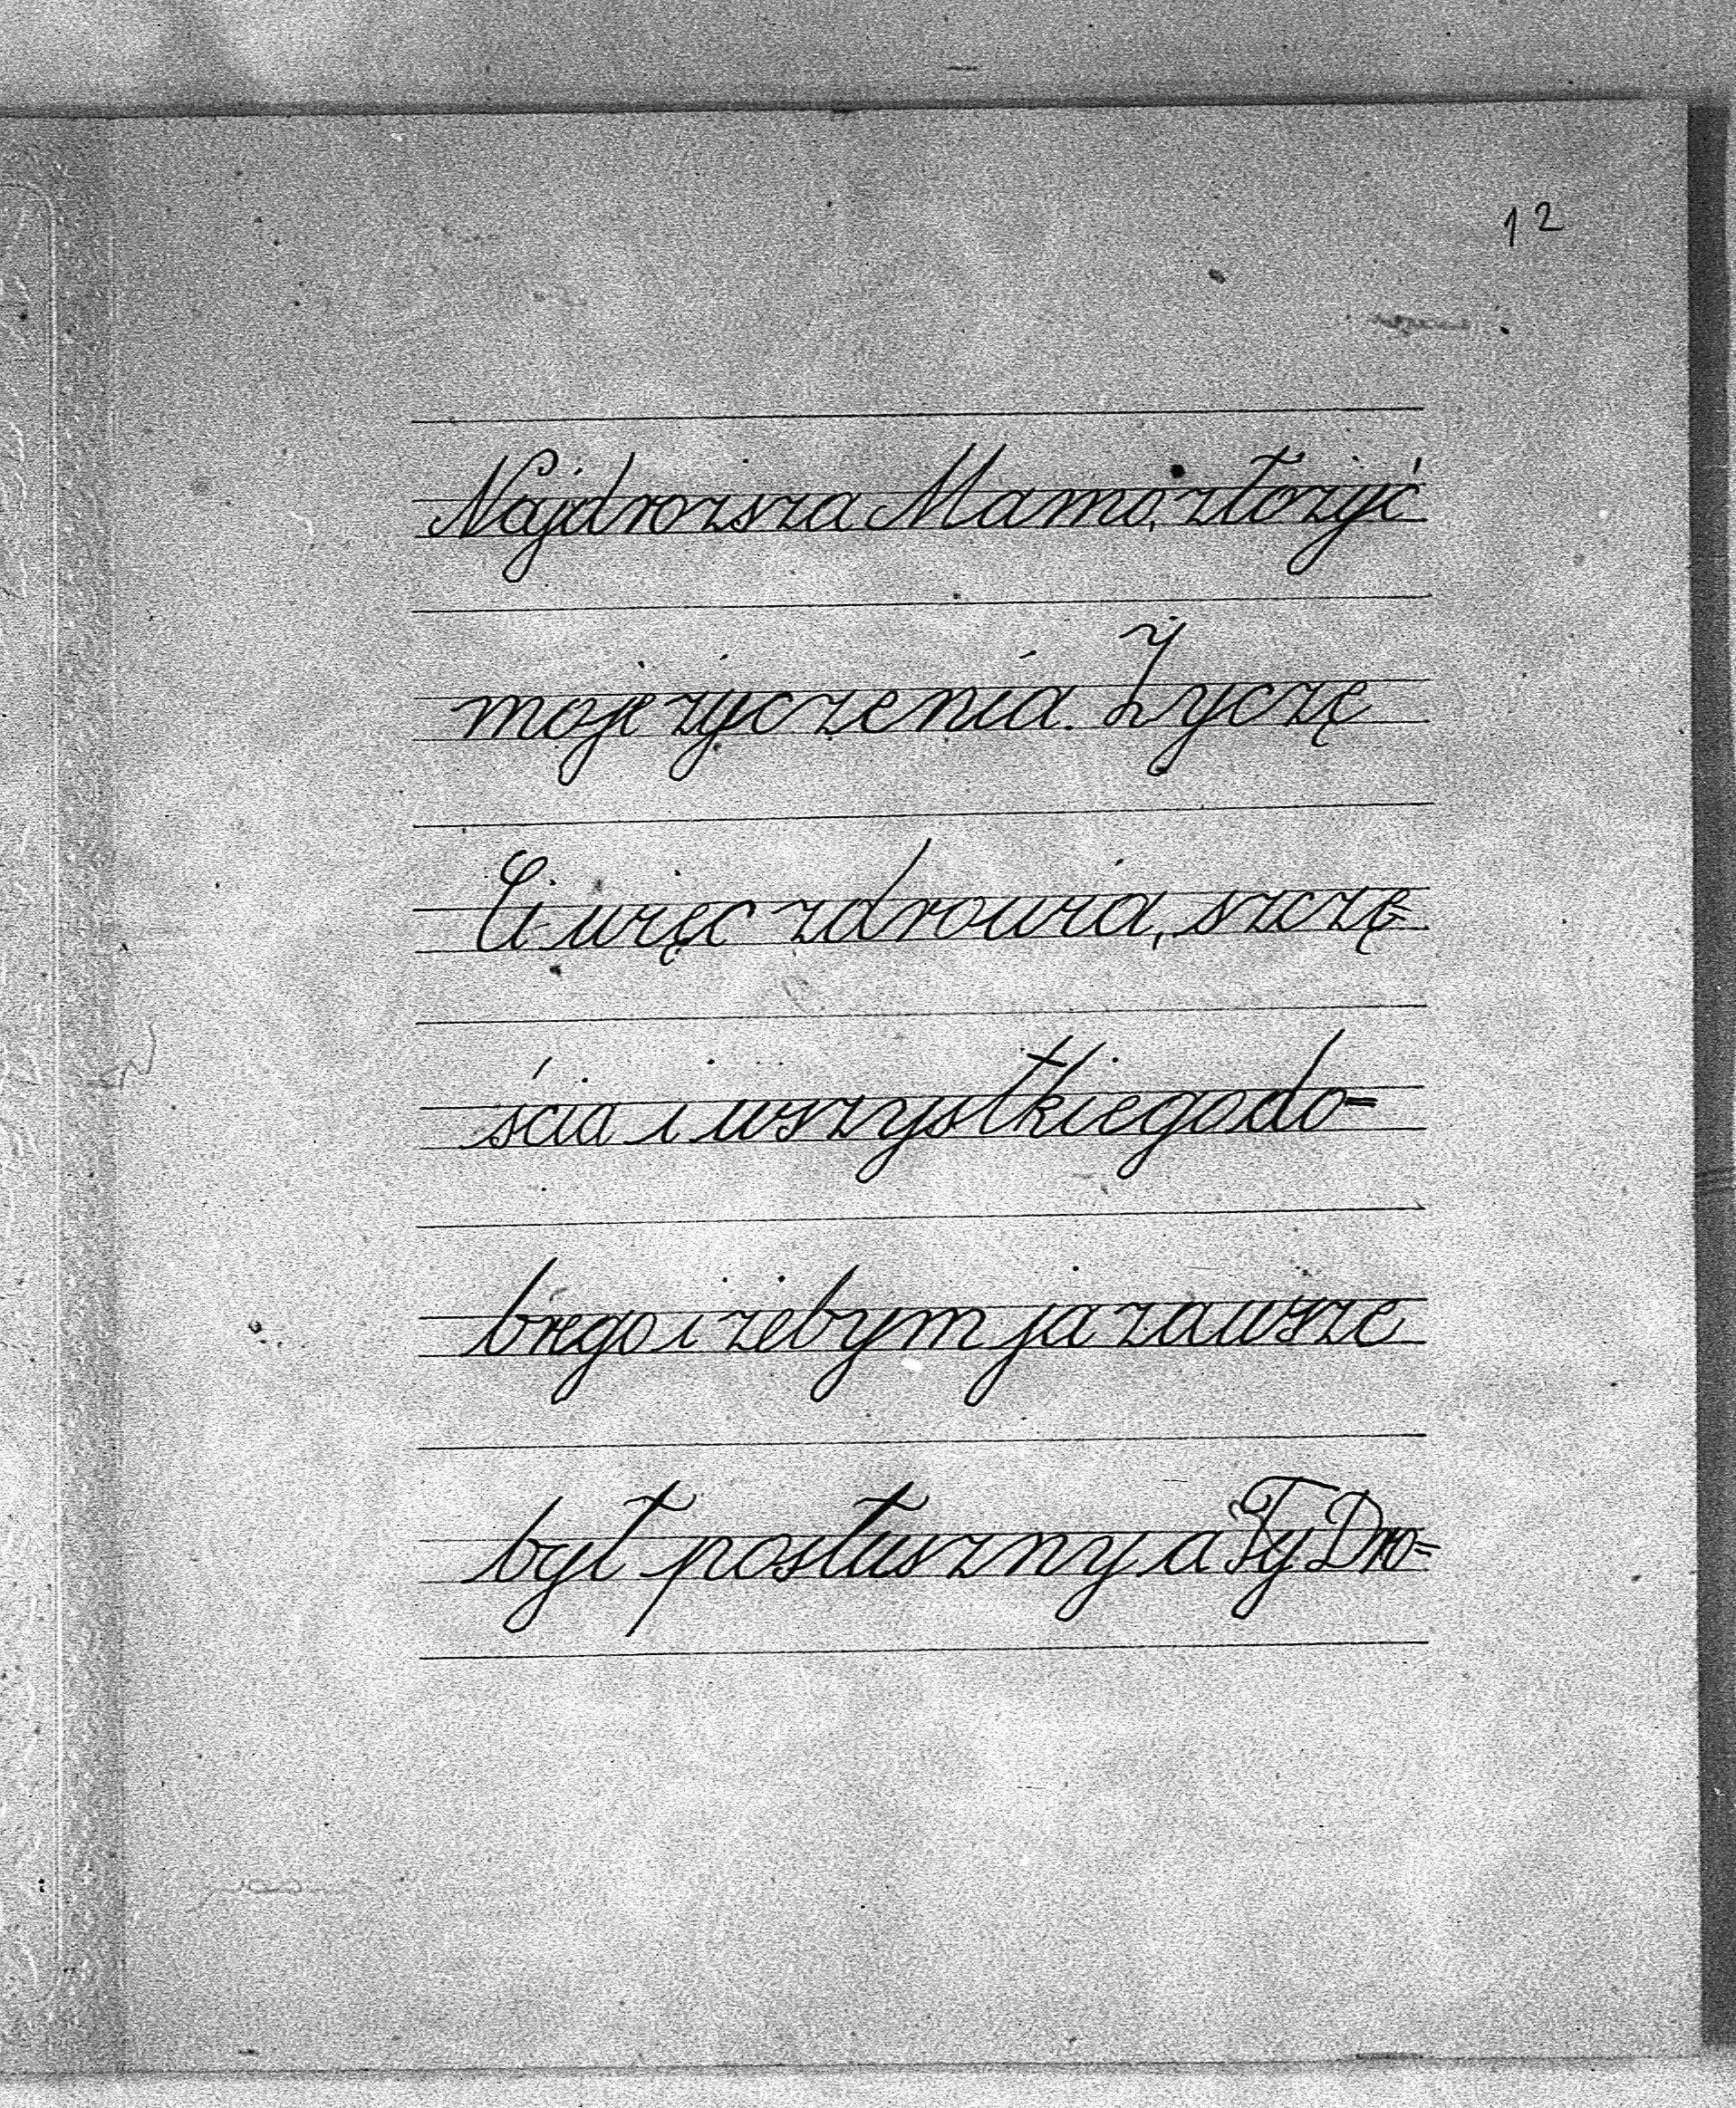 12
Najdrozsza Mamo, złożyć
moje życzenia. Życzę
Ci więc zdrowia, szczę=
ścia i wszystkiego do=
brego i żebym ja zawsze
był posłuszny a Ty Dro=